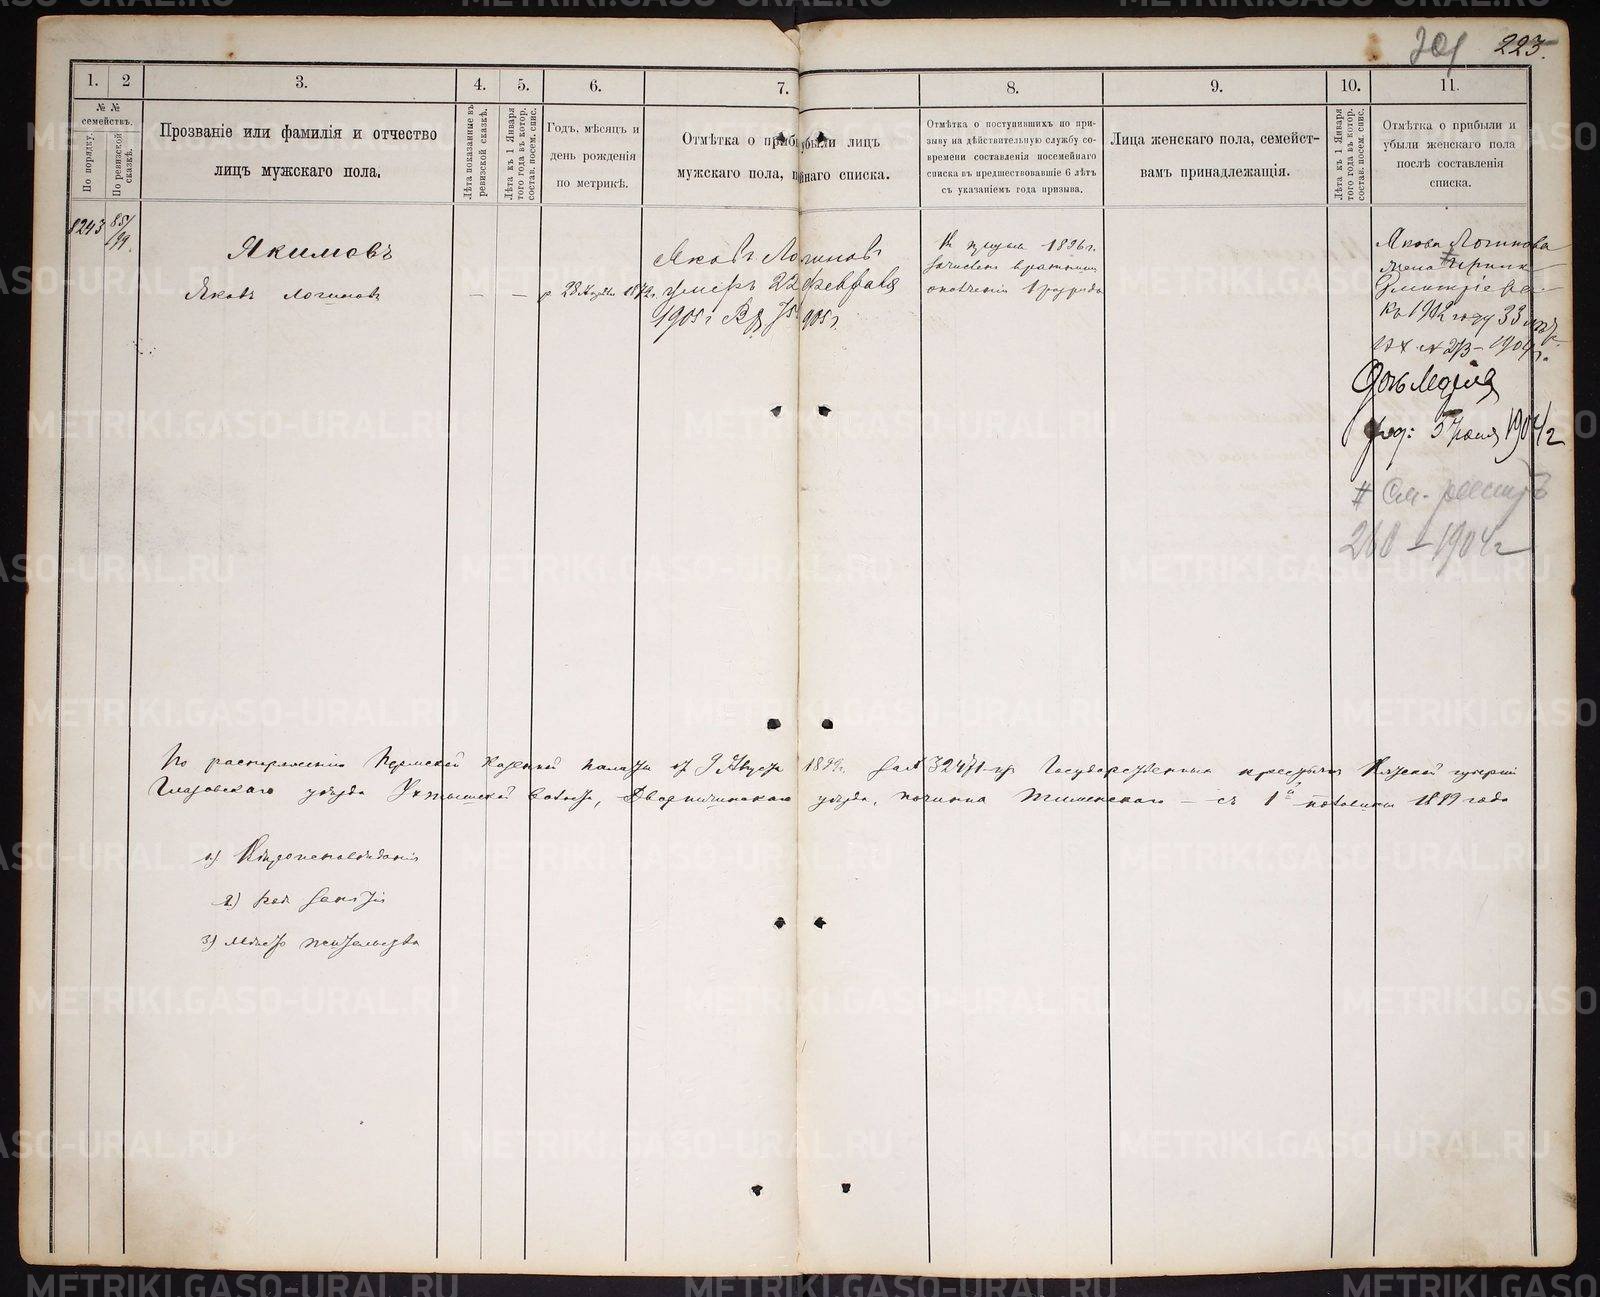 223.
1.
2
3.
4.
5.
6.
7.
8.
9.
10.
11.
№ №
семействъ.
По порядку.
По ревизской
сказкѣ.
Прозваніе или фамилія и отчество
лицъ мужскаго пола.
Лѣта показанные въ
ревизской сказкѣ.
Лѣта къ 1 Января
того года въ котор.
состав. посем. спис.
Годъ, мѣсяцъ и
день рожденія
по метрикѣ.
Отмѣтка о приб убыли лицъ
мужскаго пола, п йнаго списка.
Отмѣтка о поступившихъ по при-
зыву на дѣйствительную службу со-
времени составленія посемейнаго
списка въ предшествовавшіе 6 лѣтъ
съ указаніемъ года призыва.
Лица женскаго пола, семейст-
вамъ принадлежащія.
Лѣта къ 1 Января
того года въ котор.
состав. посем. спис.
Отмѣтка о прибыли и
убыли женскаго пола
послѣ составленія
списка.
8243
85/
99.
Якимовъ
Яковъ Логиновъ
— —
р 28
Яковъ Логиновъ
умеръ 22 Февраля
1905 г
905 г.
1896 г.
зачисленъ въ ратники
ополченія 1 разряда
Якова Логинова
жена Ирина
Дмитріева
къ 1912 году 33 лѣтъ
№ 273 – 1904 г.
Дочь Марія
род: 5 1904 г
# См. реестръ
260 – 1904 г
По распоряженію Пермской Казенной Палаты от 9 Августа 1899 г. за № 32471 Государственныхъ крестьянъ Вятской губерніи
Глазовскаго уѣзда починка – съ 1й половины 1899 года
1) Вѣроисповѣданія
2) Род занятій
3) Мѣсто жительства
METRIKI.GASO-URAL.RU